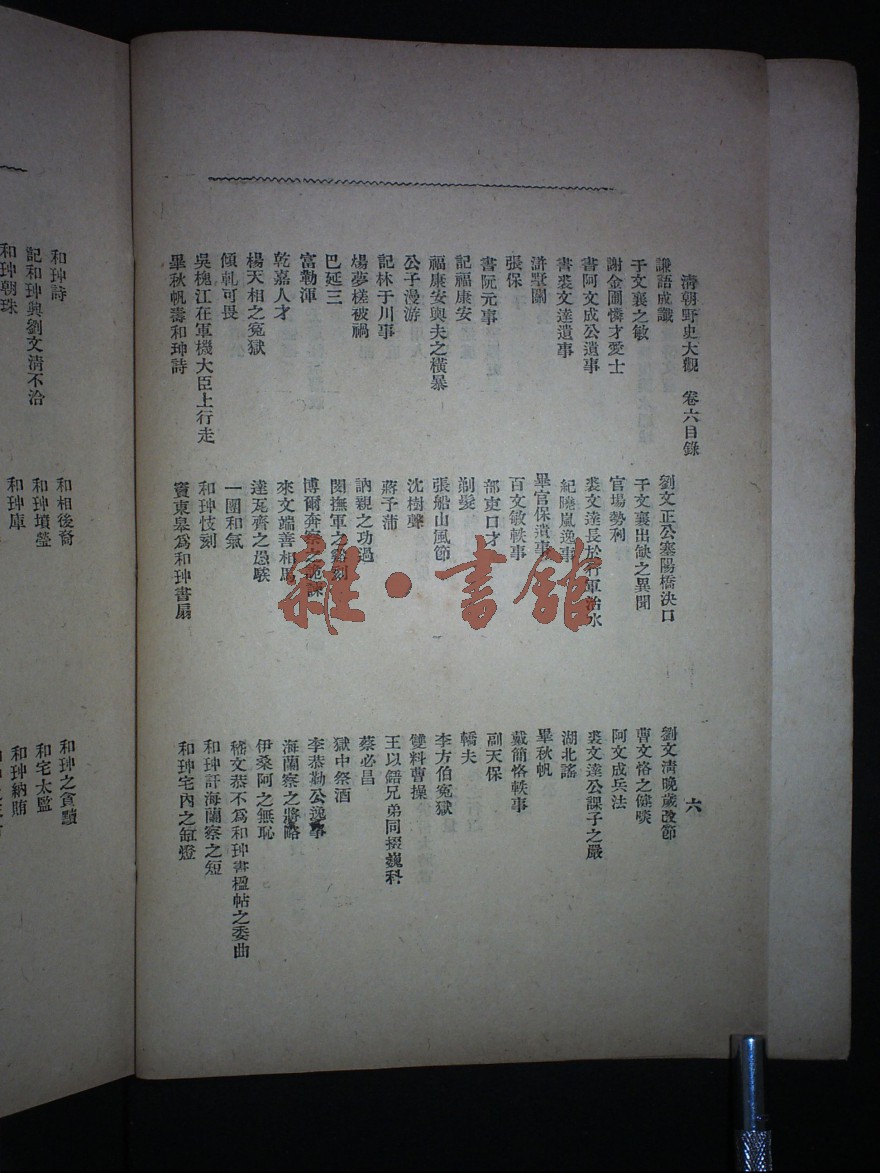 清朝野史大觀 卷六目錄 六
讖語成讖
劉文正公塞陽橋決口
劉文清晚歲改節
于文襄之敏
于文襄出缺之異聞
曹文恪之健啖
謝金圃憐才愛士
官場勢利
阿文成兵法
書阿文成公遺事
裘文達長於行軍治水
裘文達公課子之嚴
書裘文達遺事
紀曉嵐逸事
湖北謠
滸墅關
畢官保遺事
畢秋帆
張保
百文敏軼事
戴簡恪軼事
書阮元事
部吏口才
副天保
記福康安
剃髮
轎夫
福康安輿夫之橫暴
張船山風節
李方伯冤獄
公子漫游
沈樹聲
雙料曹操
記林于川事
蔣予蒲
王以鋙兄弟同掇巍科
煬夢槎被禍
訥親之功過
蔡必昌
巴延三
閔撫軍之谿刻
獄中祭酒
富勒渾
博爾奔察之詭諫
李恭勤公逸事
乾嘉人才
來文端善相馬
海蘭察之將略
楊天相之冤獄
達瓦齊之愚騃
伊桑阿之無恥
傾軋可畏
一團和氣
嵇文恭不為和珅書楹帖之委曲
吳槐江在軍機大臣上行走
和珅忮刻
和珅訐海蘭察之短
畢秋帆壽和珅詩
竇東皋為和珅書扇
和珅宅內之缸燈
和珅詩
和相後裔
和珅之貪黷
記和珅與劉文清不洽
和珅墳塋
和宅太監
和珅朝珠
和珅庫
和珅納賄
雜·書館